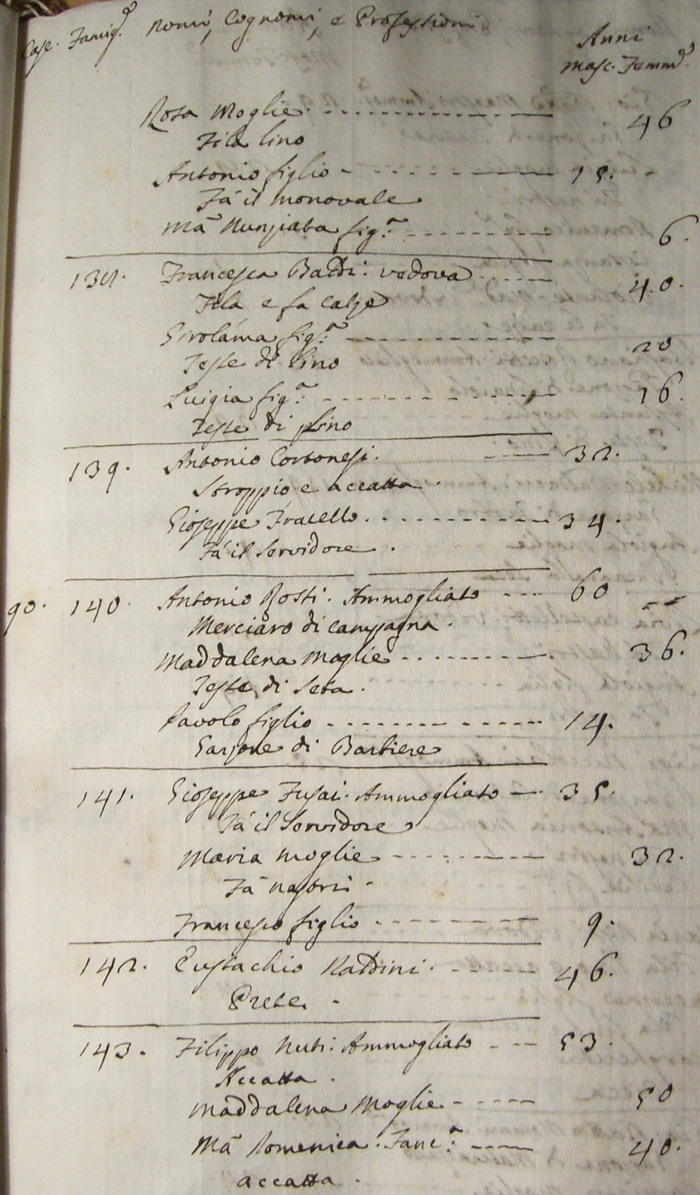 Case. Famig.e Nomi, Cognomi, e Professioni
Anni
Masc. Femm.e
Rosa Moglie. 46
Fila lino
Antonio figlio 15.
Fà il manovale
M.a Nunziata fig.a 6.
138. Francesca Baldi: vedova 40.
Fila e fa calze
Girolama fig.a 20
Tesse di lino
Luigia fig.a 16.
Tesse di lino
139. Antonio Cortonesi. 32.
Stroppio, e accatta.
Gioseppe Fratello. 34.
Fà il Servidore.
90. 140. Antonio Rosti. Ammogliato 60
Merciaro di campagna.
Maddalena Moglie 36.
Tesse di Seta.
Pavolo figlio 14.
Garzone di Barbiere
141. Gioseppe Fusai. Ammogliato 35.
Fà il Servidore
Maria Moglie 32.
Fà nastri.
Francesco figlio 9.
142. Eustachio Naldini. 46.
Prete.
143. Filippo Nuti: Ammogliato 53.
Accatta.
Maddalena Moglie 50
M.a Domenica. 40.
accatta.